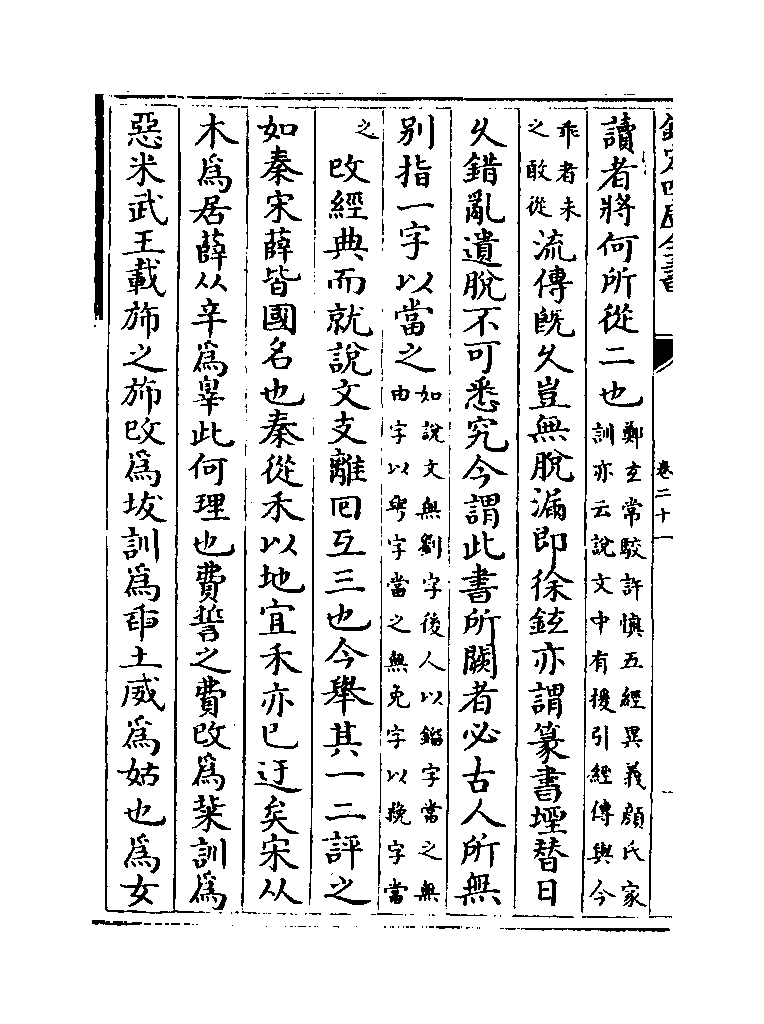 欽定四庫全書
卷二十一
讀者將何所從二也鄭玄常駁許慎五經異義顔氏家
訓亦云說文中有援引經傳與今
乖者未
之敢從流傳旣久豈無脫漏即徐鉉亦謂篆書堙替日
久錯亂遺脫不可悉究今謂此書所闕者必古人所無
别指一字以當之如說文無劉字後人以鎦字當之無
由字以甹字當之無免字以挽字當
之改經典而就說文支離回互三也今舉其一二評之
如秦宋薛皆國名也秦從禾以地宜禾亦已迂矣宋从
木為居薛从辛為辠此何理也費誓之費改為粊訓為
惡米武王載斾之斾改為坺訓為臿土威為姑也為女